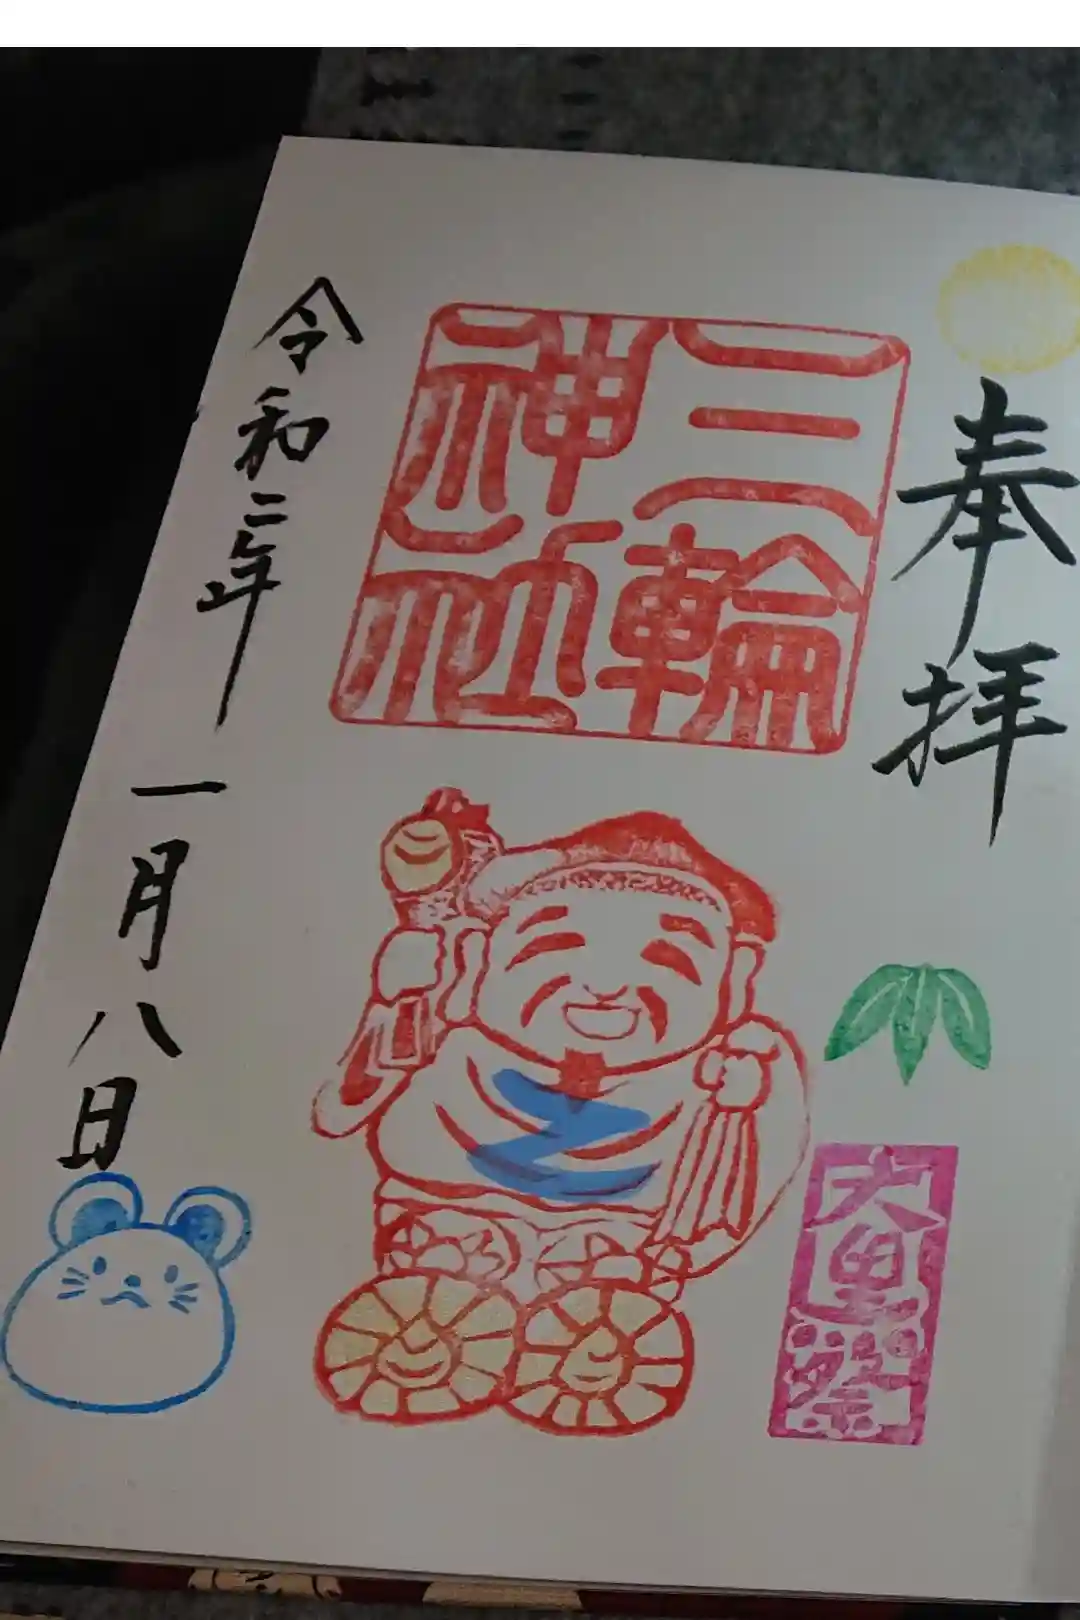 奉拝
三輪
神社
大黒祭
令和二年一月八日